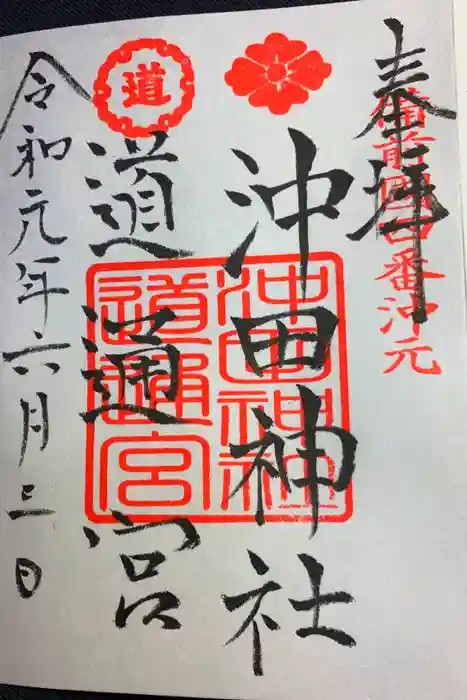 奉拝
備前國四番沖元
沖田神社
沖田神社
道
道通宮
道通宮
令和元年六月三日